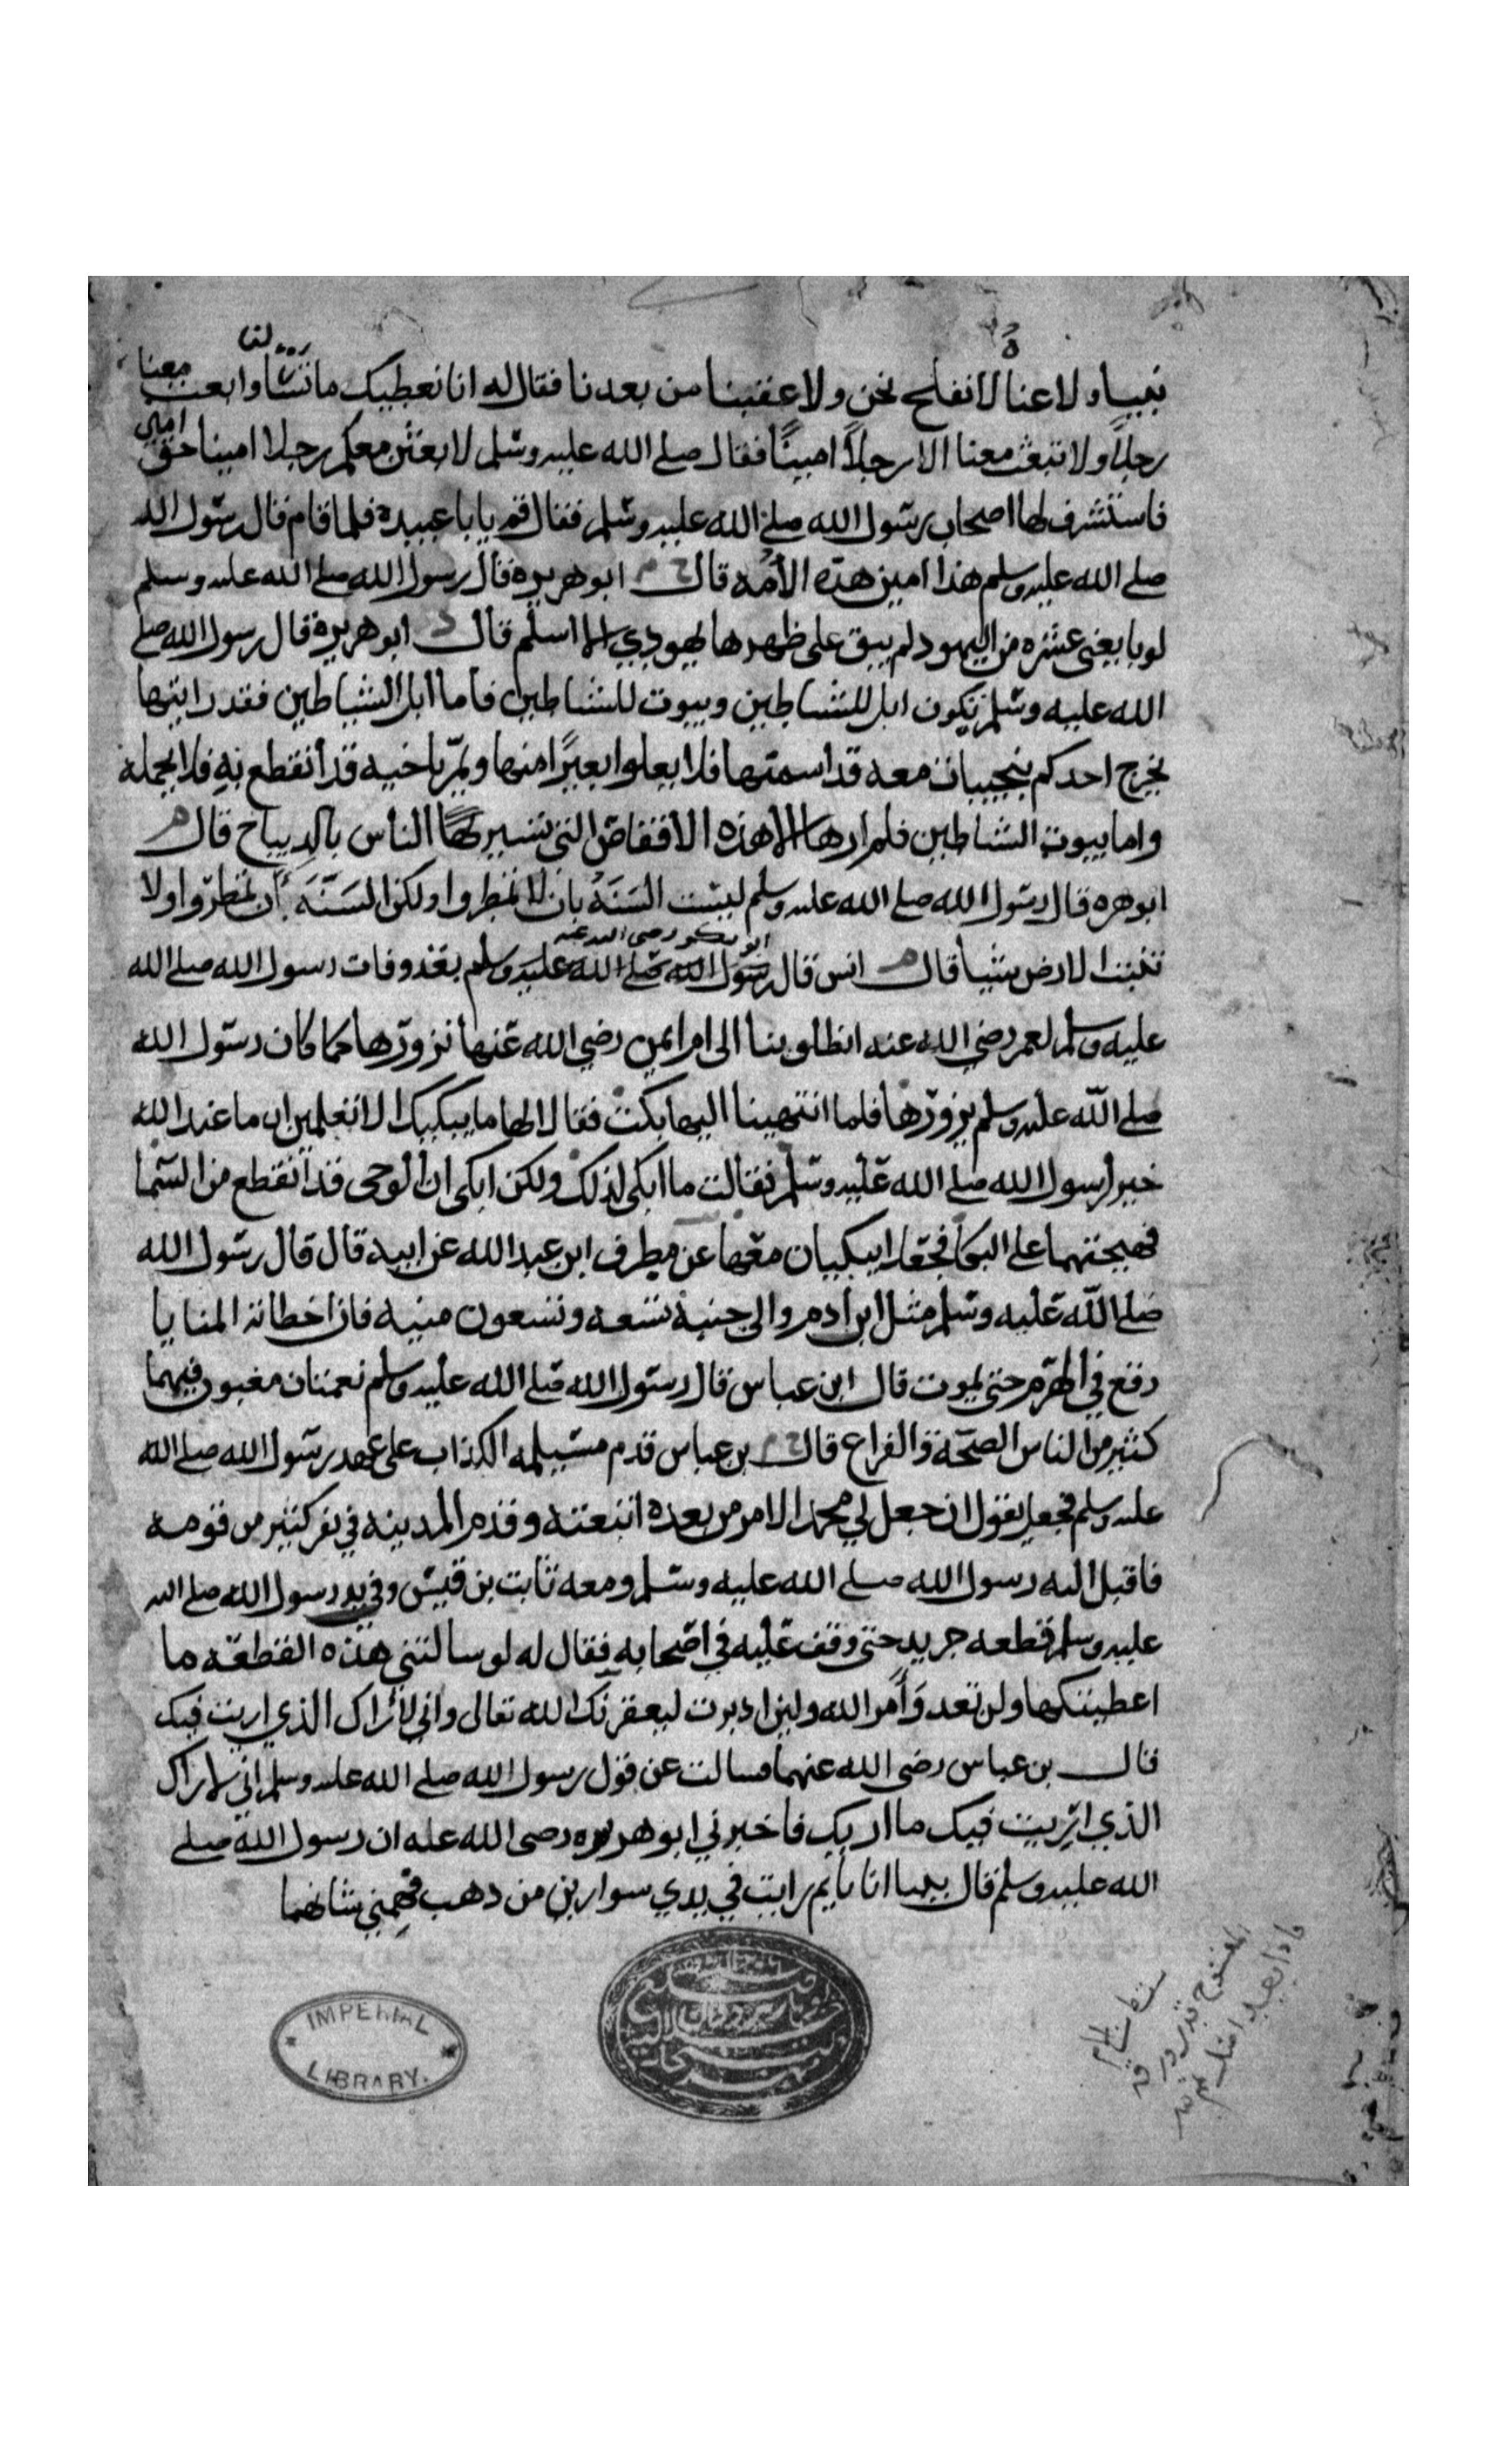 نبيا ولاعنا لا نفلح نحن ولا عقبنا من بعدنا فقال له انا نعطيك ما تشأ وابعث معنا
رجلاً ولا تبعث معنا الا رجلاً امينًا فقال صلى الله عليه وسلم لابعثن معكم رجلا امينا حق امين
فاستشرف لها اصحاب رسول الله صلى الله عليه وسلم فقال قم يابا عبيدة فلما قام قال رسول الله
صلى الله عليه وسلم هذا امين هذه الأمه قال خ م ابو هريرة قال رسول الله صلى الله عليه وسلم
لو بايعنى عشره من اليهود لم يبق على ظهرها يهودي الا اسلم قال د ابو هريرة قال رسول الله صلى
الله عليه وسلم تكون ابل للشياطين وبيوت للشياطين فأما أبل الشياطين فقد رايتها
يخرج احدكم بنجيبات معه قد اسمنها فلا يعلوا بعيرًا منها ويمرّ باخيه قد أنقطع به فلا يحمله
واما بيوت الشياطين فلم ارها الا هذه الاقفاص التى تسير بها الناس بالديباج قال م
ابو هره قال رسول الله صلى الله عليه وسلم ليست السَنَةُ بان لا تمطروا ولكن السَنَّةَ أن تمطروا ولا
تنبت الارض شيأ قال م انس قال رسول الله صلى الله عليه وسلم بعد وفات رسول الله صلى الله
ابو بكر رضى الله عنه
عليه وسلم لعمر رضي الله عنه انطلو بنا الى ام ايمن رضي الله عنها نزورها كما كان رسول الله
صلى الله عليه وسلم يزورها فلما انتهينا اليها بكت فقالا لها ما يبكيك الا تعلمين ان ما عند الله
خير لرسول الله صلى الله عليه وسلم فقالت ما ابكى لذلك ولكن ابكى ان الوحى قد انقطع من السما
فهيجتهما على البكا فجعلا يبكيان معها عن مطرف ابن عبد الله عن ابيه قال قال رسول الله
صلى الله عليه وسلم مثل ابن ادم والى جنبه تسعه وتسعون منيه فان اخطاته المنايا
دفع في الهرم حتى يموت قال ابن عباس قال رسول الله صلى الله عليه وسلم نعمتان مغبون فيهما
كثير من الناس الصحة والفراغ قال خ م بن عباس قدم مسيلمه الكذاب على عهد رسول الله صلى الله
عليه وسلم فجعل يقول ان جعل لي محمد الامر من بعده اتبعته وقدم المدينه في نفر كثير من قومه
فاقبل اليه رسول الله صلى الله عليه وسلم ومعه ثابت بن قيس وفي يد رسول الله صلى الله
عليه وسلم قطعه جريد حتى وقف عليه في اصحابه فقال له لو سالتني هذه القطعه ما
اعطيتكها ولن تعد وأمر الله ولين ادبرت ليعقرنك الله تعالى واني لأراك الذي اريت فيك
قال بن عباس رضى الله عنهما فسالت عن قول رسول الله صلى الله عليه وسلم اني لاراك
الذي اريت فيك ما اريك فاخبرني ابو هريره رضى الله عنه ان رسول الله صلى
الله عليه وسلم قال بينا انا نايم رايت في يدي سوارين من دهب فهمني شانهما
IMPERIAL
LIBRARY.